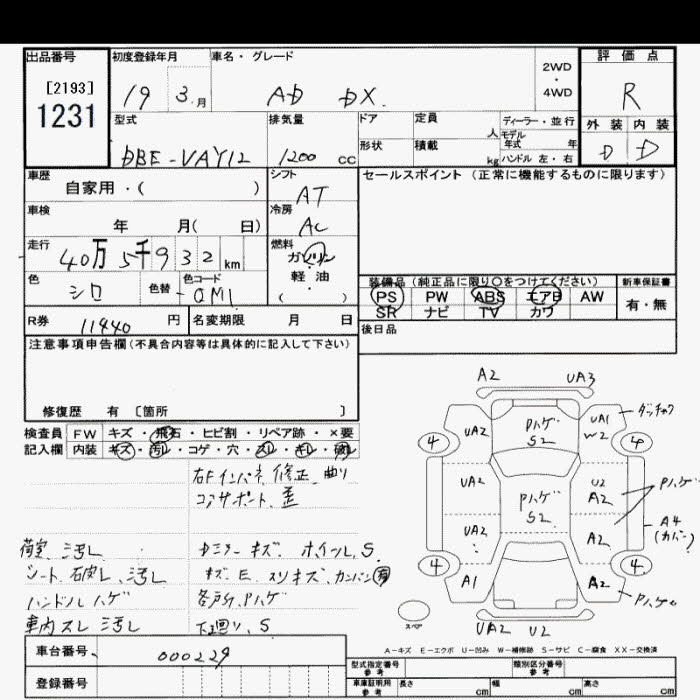 出品番号
[2193]
1231
初度登録年月
19 3.月
車名・グレード
AD DX.
2WD
・
4WD
評価点
R
外装 内装
D D
型式
DBE-VAY12
排気量
1200 cc
ドア
形状
定員
人
積載
kg
ディーラー・並行
モデル年式 年
ハンドル 左・右
車歴
自家用・( )
車検
年 月( 日)
走行
40万5千932 km
色
シロ
色替
色コード
-QM1
シフト
AT
冷房
AC
燃料
ガソリン
軽・油
( )
セールスポイント (正常に機能するものに限ります)
装備品 (純正品に限り○をつけてください)
PS PW ABS エアB AW
SR ナビ TV カワ
新車保証書
有・無
R券 11440 円
名変期限 月 日
後日品
注意事項申告欄(不具合内容等は具体的に記入して下さい)
修復歴 有 〔箇所 〕
検査員記入欄
FW キズ・飛石・ヒビ割・リペア跡・×要
内装 キズ・汚レ・コゲ・穴・スレ・キレ・破レ
右Fインパネ 修正、曲り
コアサポート、歪
荷室、汚レ
シート、破レ、汚レ
ハンドルハゲ
車内スレ 汚レ
キズ. ホイール, S.
キズ. E. スリキズ. カンバン有
各所, Pハゲ
下廻り, S
A2 UA3
UA2 Pハゲ S2 UA1 W2 ダッチャク
4 4
UA2 Pハゲ S2 U2 A2 Pハゲ
UA2 A2 A4 (カバン)
4 4
A1 A2 Pハゲ
スペア
UA2 U2
A-キズ E-エクボ U-凹み W-補修跡 S-サビ C-腐食 XX-交換済
車台番号 000229
登録番号
型式指定番号 参考
類別区分番号 参考
車庫証明用 参考
長さ cm 幅 cm 高さ cm